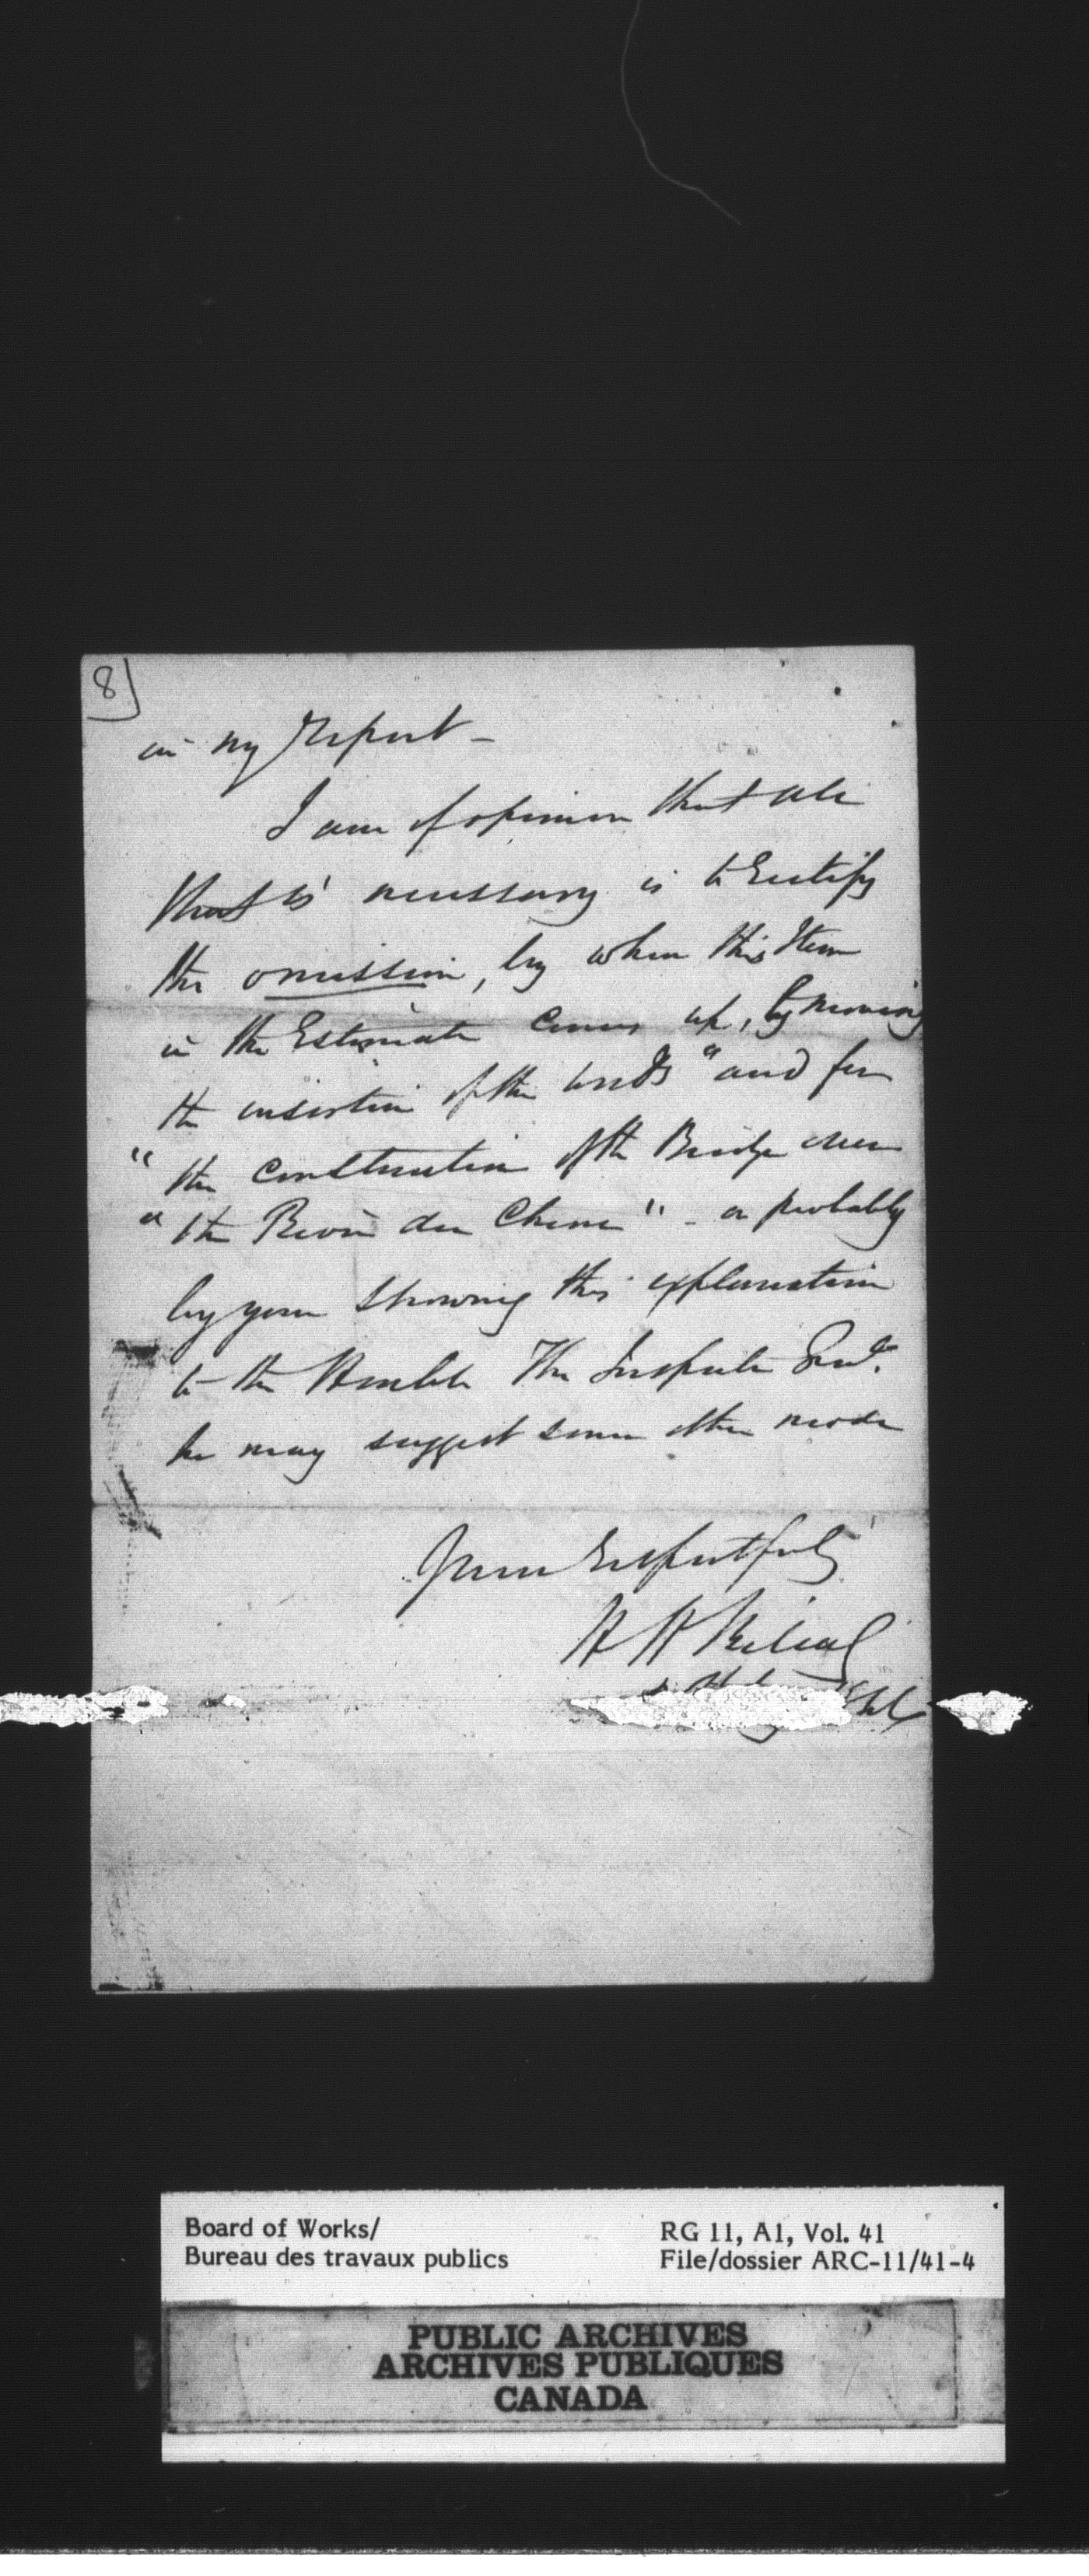 8
in my report -
I am of opinion that all
that is necessary is to rectify
the omission, by when this Item
in the Estimate comes up, by moving
the insertion of the words "and for
" the construction of the Bridge over
" the Rivière du Chêne" - or probably
by your showing this explanation
to the Honble The Inspector Genl.
he may suggest some other mode
Yours respectfully
H H Killaly
Board of Works/
Bureau des travaux publics
RG 11, A1, Vol. 41
File/dossier ARC-11/41-4
PUBLIC ARCHIVES
ARCHIVES PUBLIQUES
CANADA